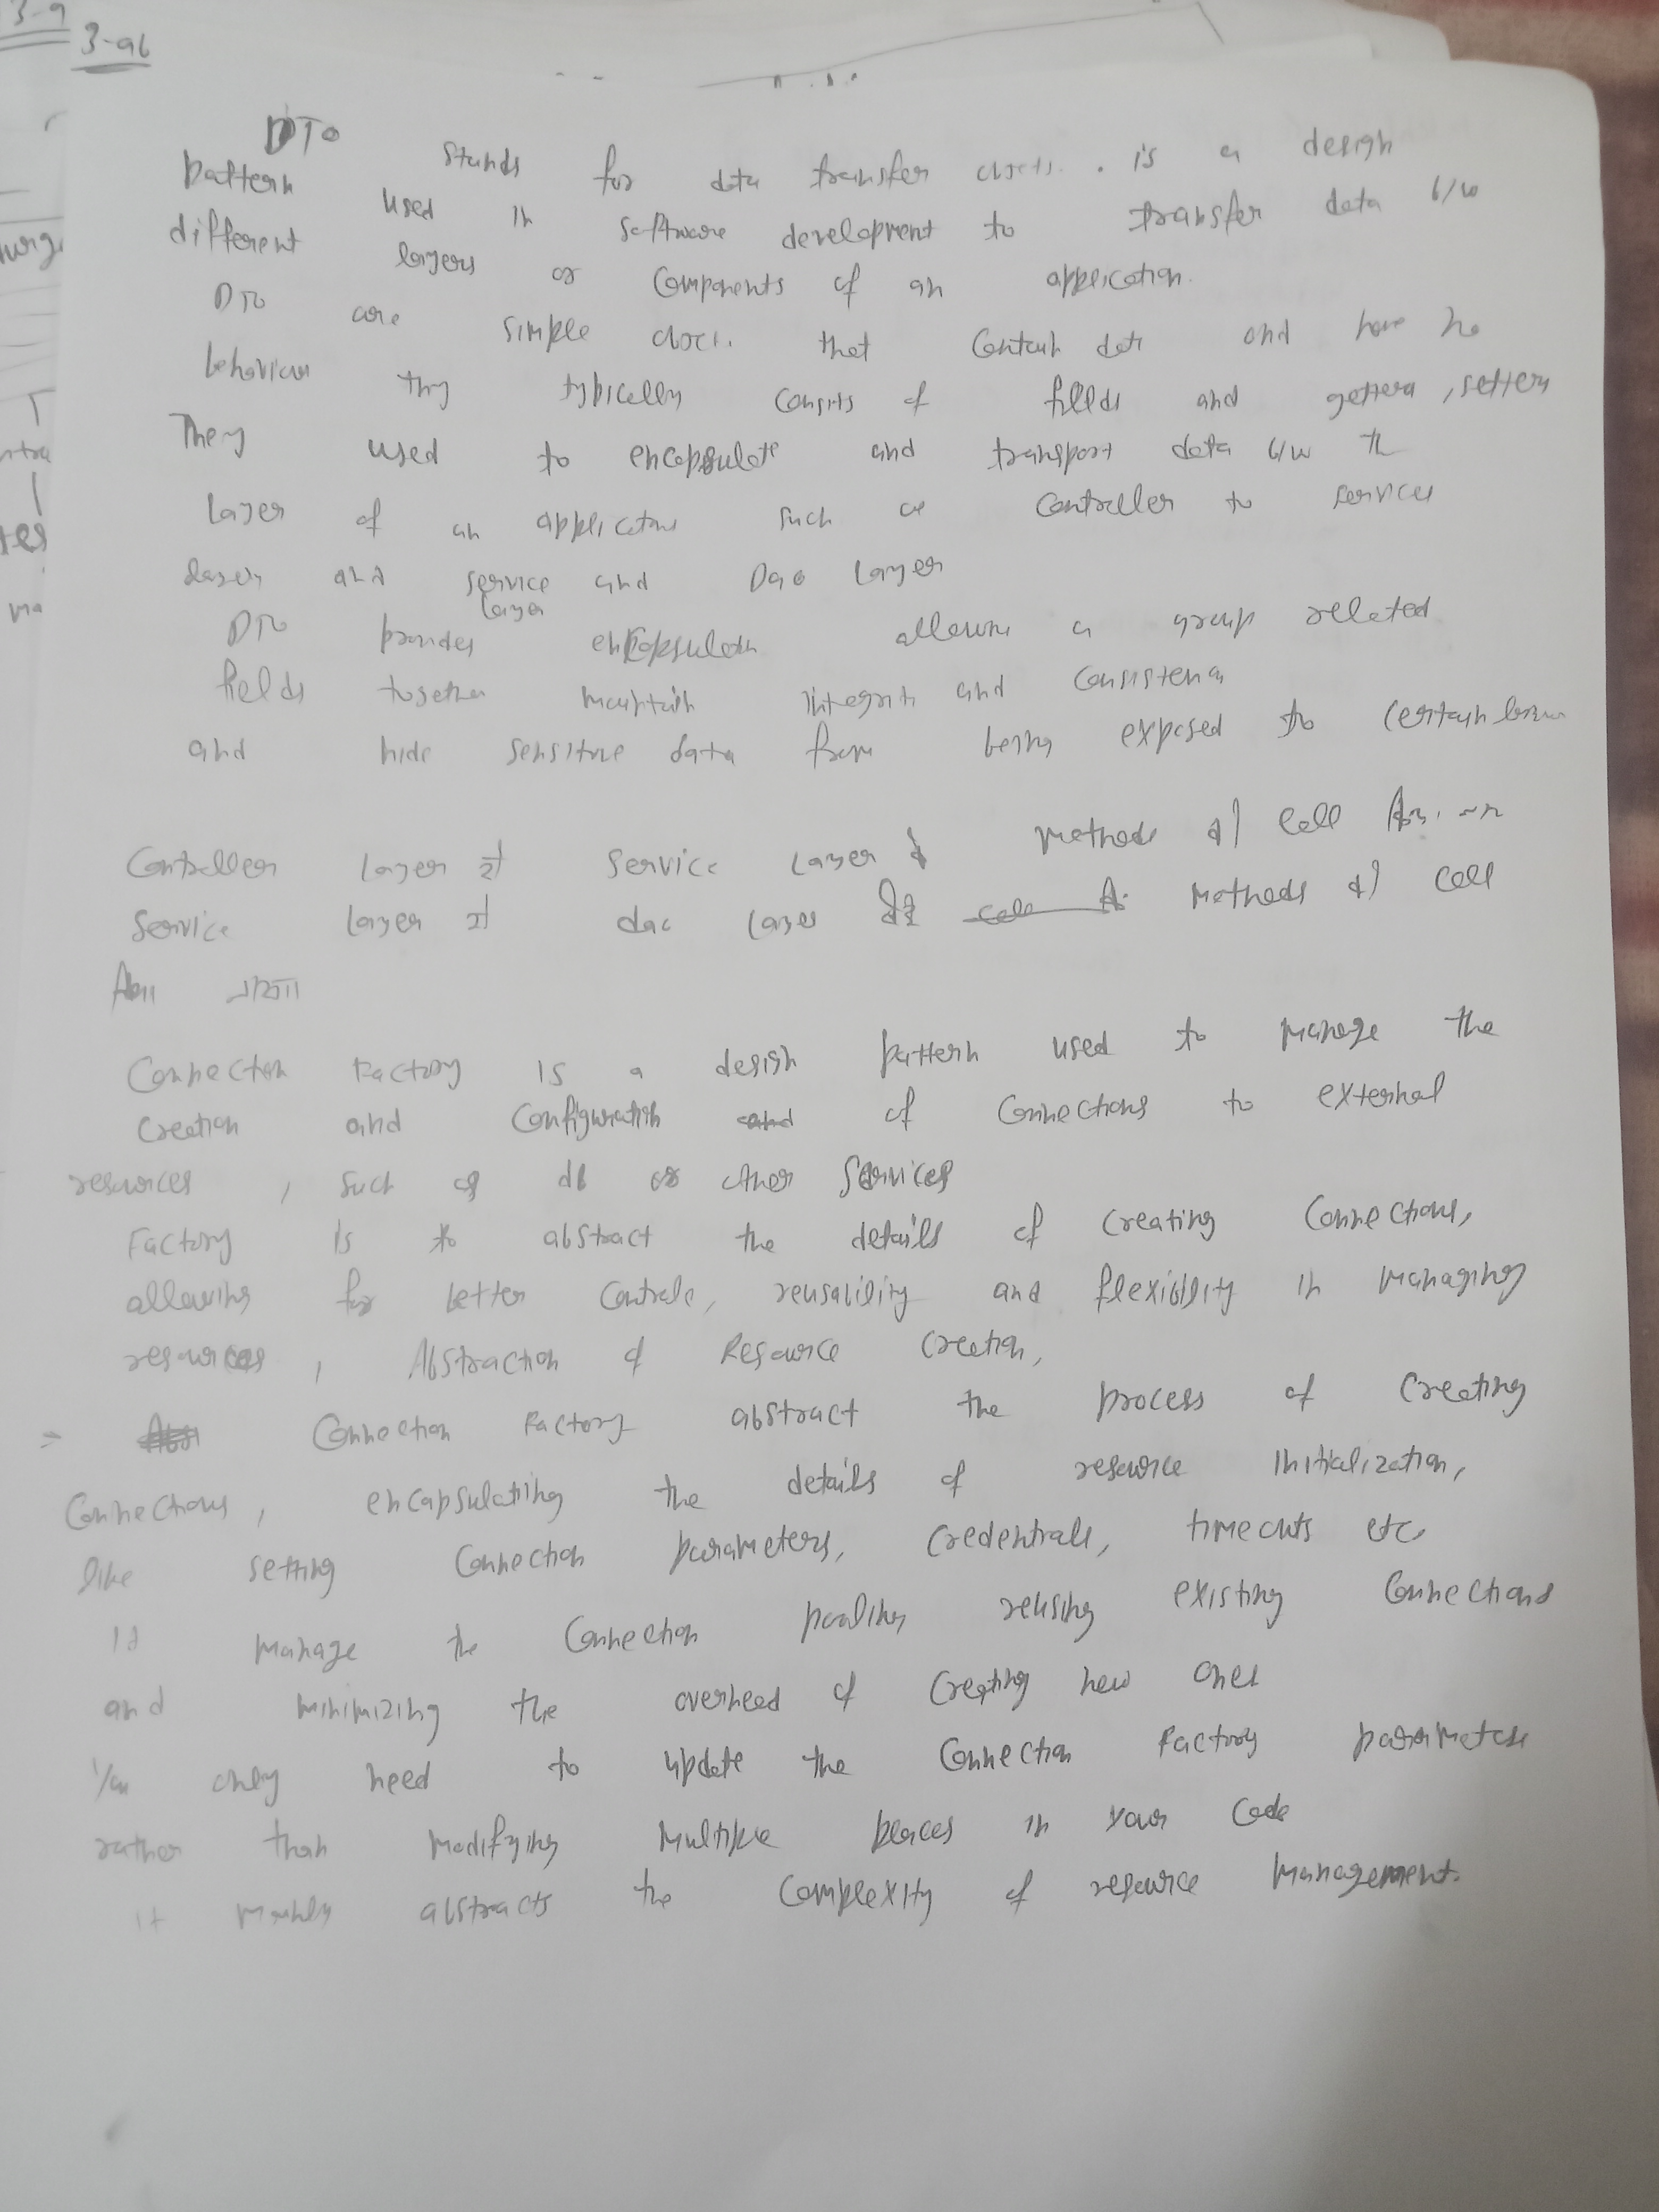 3-9
3-ab
DTO stands for data transfer is a design
pattern used in software development to transfer data b/w
different layers or components of an application.
DTO are simple that contain data and have no
behaviour they typically consits of fields and getters, setters
They used to encapsulate and transport data b/w the
layer of an application such as controller to services
layer and service layer and Dao layer
DTO provides encapsulation allowing a group related
fields together maintain integrity and consistency
and hide sensitive data from being exposed to certain
Controller layer से service layer के methods को call
Service layer से dao layer के methods को call
किया जाता
Connection Factory is a design pattern used to manage the
creation and configuration of connections to external
resources, such as db or other services
Factory is to abstract the details of creating connections,
allowing for better controle, reusability and flexiblity in managing
resources, Abstraction of Resource creation,
Connection Factory abstract the process of creating
connections, encapsulating the details of resource initialization,
like setting connection parameters, credentials, timeouts etc
It manage the connection pooling reusing existing connections
and minimizing the overhead of creating new ones
You only need to update the connection factory parameters
rather than modifying multiple places in your code
it mainly abstracts the complexity of resource management.